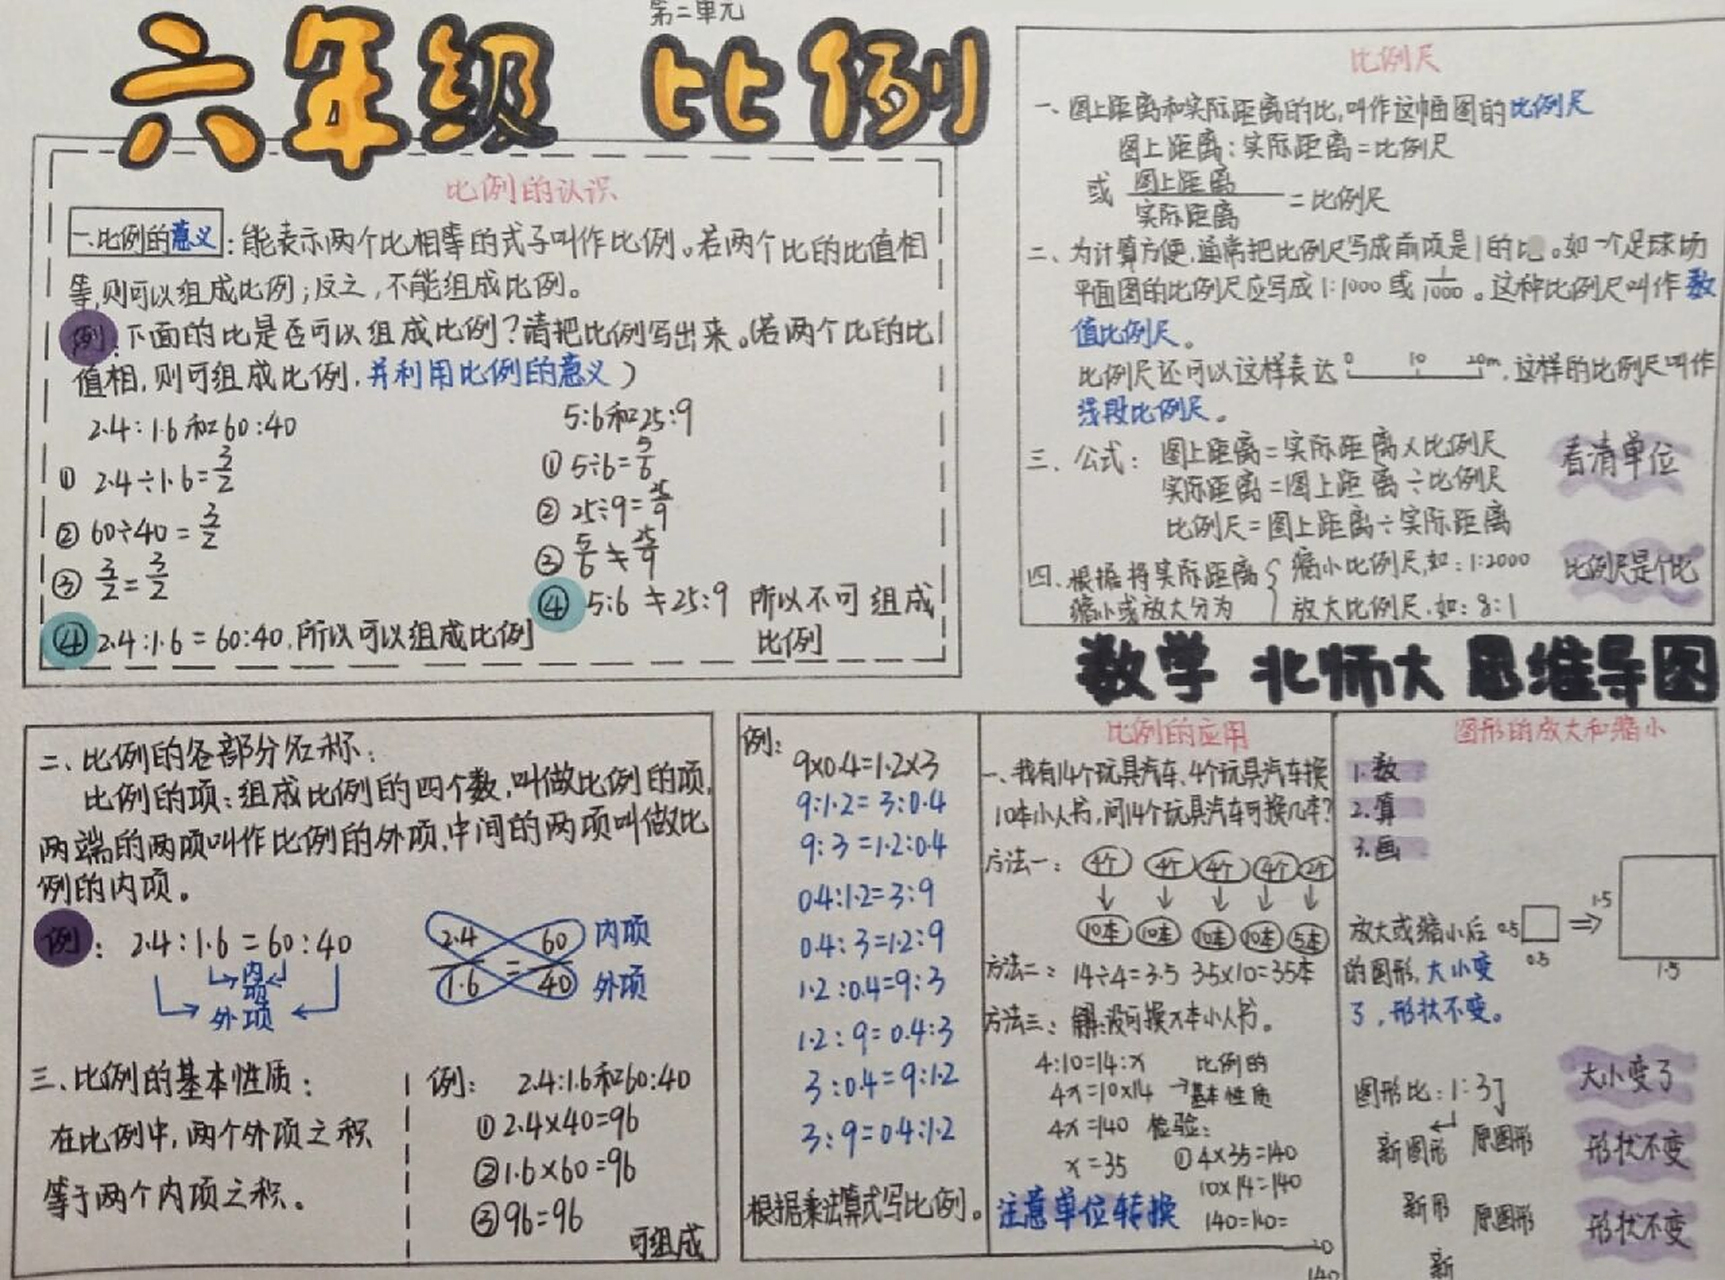 第二单元
六年级 比例
比例的认识
一.比例的意义:能表示两个比相等的式子叫作比例。若两个比的比值相
等,则可以组成比例;反之,不能组成比例。
例:下面的比是否可以组成比例?请把比例写出来。(若两个比的比
值相,则可组成比例,并利用比例的意义)
2.4:1.6和60:40
① 2.4÷1.6=3/2
② 60÷40=3/2
③ 3/2=3/2
④ 2.4:1.6=60:40,所以可以组成比例
5:6和25:9
① 5÷6=5/6
② 25÷9=25/9
③ 5/6≠25/9
④ 5:6≠25:9 所以不可组成
比例
比例尺
一、图上距离和实际距离的比,叫作这幅图的比例尺
图上距离:实际距离=比例尺
或 图上距离/实际距离=比例尺
二、为计算方便,通常把比例尺写成前项是1的比。如一个足球场
平面图的比例尺应写成1:1000或1/1000。这种比例尺叫作数
值比例尺。
比例尺还可以这样表达 0 10 20m,这样的比例尺叫作
线段比例尺。
三、公式: 图上距离=实际距离×比例尺
实际距离=图上距离÷比例尺
比例尺=图上距离÷实际距离
看清单位
四.根据将实际距离
缩小或放大分为
缩小比例尺,如:1:2000
放大比例尺.如:8:1
比例尺是个比
数学 北师大 思维导图
二、比例的各部分名称:
比例的项:组成比例的四个数,叫做比例的项,
两端的两项叫作比例的外项,中间的两项叫做比
例的内项。
例: 2.4:1.6=60:40
内
项
外项
2.4/1.6=60/40
内项
外项
三、比例的基本性质:
在比例中,两个外项之积
等于两个内项之积。
例: 2.4:1.6和60:40
① 2.4×40=96
② 1.6×60=96
③ 96=96
可组成
例:
9×0.4=1.2×3
9:1.2=3:0.4
9:3=1.2:0.4
0.4:1.2=3:9
0.4:3=1.2:9
1.2:0.4=9:3
1.2:9=0.4:3
3:0.4=9:1.2
3:9=0.4:1.2
根据乘法算式写比例。
比例的应用
一、我有14个玩具汽车、4个玩具汽车换
10本小人书,问14个玩具汽车可换几本?
方法一: 4个 4个 4个 4个 2个
10本 10本 10本 10本 5本
方法二: 14÷4=3.5 35×10=35本
方法三: 解:设可换x本小人书。
4:10=14:x 比例的
4x=10×14 →基本性质
4x=140 检验:
x=35 ① 4×35=140
10×14=140
注意单位转换 140=140=
140
图形的放大和缩小
1.数
2.算
3.画
放大或缩小后
的图形,大小变
了,形状不变。
0.5
0.5
1.5
1.5
图形比:1:3
新图形 原图形
新形 原图形
新
大小变了
形状不变
形状不变